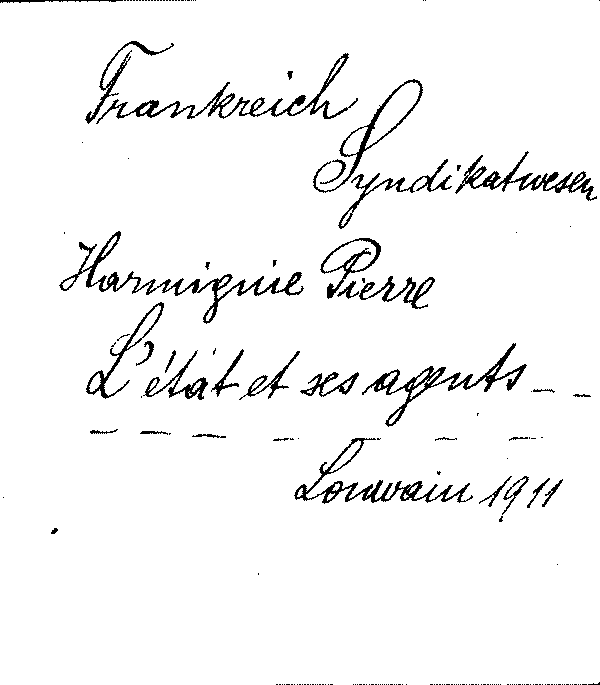 Frankreich
Syndikatwesen
Harmignie Pierre
L'état et ses agents _ _
_ _ _ _ _ _ _
Louvain 1911